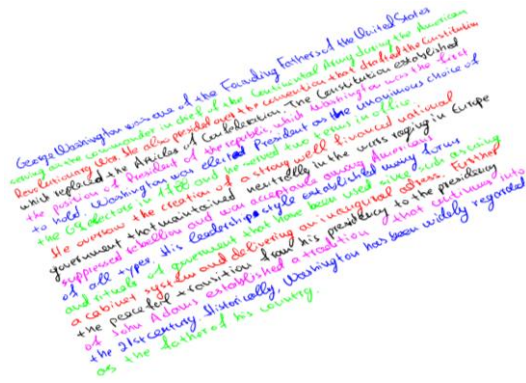 George Washington was one of the Founding Fathers of the United States
serving as the commander in chief of the Continental Army during the American
Revolutionary War. He also presided over the convention that drafted the Constitution
which replaced the Articles of Confederation. The Constitution established
the position of President of the republic, which Washington was the first
to hold. Washington was elected President as the unanimous choice of
the 69 electors in 1788 and he served two terms in office.
He oversaw the creation of a strong well financed national
government that maintained neutrality in the wars raging in Europe
suppressed rebellion and won acceptance among Americans
of all types. His leadership style established many forms
and rituals of government that have been used since such as using
a cabinet system and delivering an inaugural address. Further
the peaceful transition from his presidency to the presidency
of John Adams established a tradition that continues into
the 21st century. Historically, Washington has been widely regarded
as the father of his country.